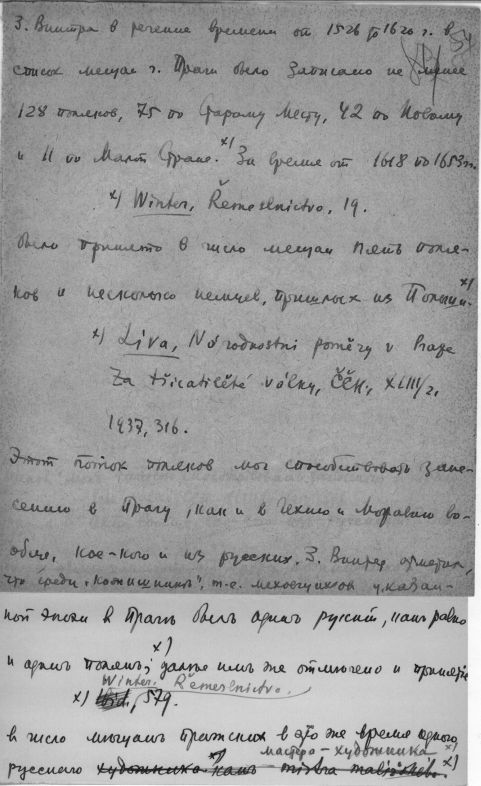 3. Винтра в течение времени от 1526 до 1620 г. в
список мещан г. Праги было записано не менее
128 поляков, 75 по Старому Месту, 42 по Новому
и 11 по Малой Стране. х) За время от 1618 по 1653 г.
х) Winter, Řemeselnictvo, 19.
было принято в число мещан пять поля-
ков и несколько немцев, пришлых из Польши. х)
х) Líva, Národnostní poměry v Praze
za třicetileté války, ČČH, XLIII/2,
1937, 316.
Этот поток поляков мог способствовать зане-
сению в Прагу, как и в Чехию и Моравию во-
обще, кое-кого и из русских. З. Винтер отметил,
что среди „кожишников", т.-е. меховщиков указан-
ной эпохи в Праге былъ один русский, наравне
и один полякъ; х) далее им же отмечено и принятие
Winter, Řemeselnictvo.
х) Ibid, 579.
в число мещанъ пражских в это же время одного
мастера-художника х)
русского художника х)